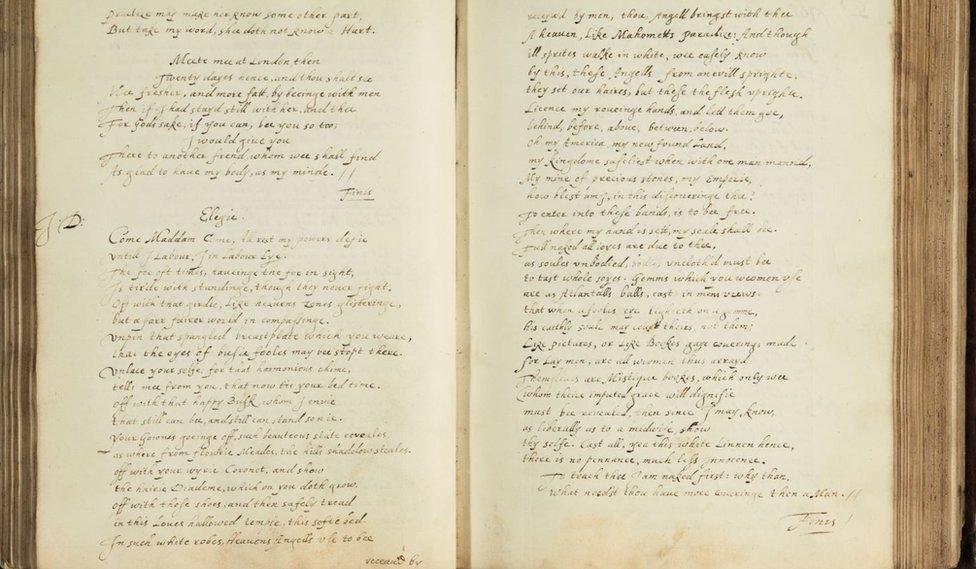 practize may make her know some other part,
But take my word, shee doth not know a Hart.
Meete mee at London then
Twenty dayes hence, and thou shalt see
Mee fresher, and more fatt, by beeinge with men
Then if I had stayd still with her, and thee
For Gods sake, if you can, bee you so too;
I would give you
There to another frend, whom wee shall find
As glad to have my body, as my minde. //
Finis
J D:
Elegie.
Come Maddam Come, All rest my powers defie
untill I Labour, I in Labour Lye.
The foe oft times, haveinge the foe in sight,
Is tirde with standinge, though they never fight.
Off with that girdle, Like heavens zones glisteringe,
but a farr fairer world in compassinge.
unpin that spangled breastplate which you weare,
that the eyes of busie fooles may bee stopt there.
Unlace your selfe, for that harmonious chime,
tells mee from you, that now tis your bed time.
off with that happy Busk, whom I envie
that still can bee, and still can stand so nie.
Your Gownes goeinge off, such beauteous state reveales,
as where from flowrie Meades, the hills shaddow steales.
off with your wyrie Coronet, and show
the hairie Diademe, which on you doth grow.
off with those shoes, and then safely tread
in this Loves hallowed temple, this softe bed.
In such white robes, Heavens Angells use to bee
receaud by
receaud by men, thou, Angell bringst with thee
A heaven, Like Mahometts Paradize: And though
ill sprites walke in white, wee easely know
by this, these Angells from an evill sprighte.
they set our haires, but these the flesh uprighte.
Licence my roveinge hands, and let them goe,
behind, before, above, between, below.
Oh my America, my new found Land,
my Kingdome safeliest when with one man manned,
My mine of precious stones, my Emperie,
how blest am I, in this discoveringe thee!
To enter into these bands, is to bee free.
Then where my hand is sett, my seale shall bee.
Full naked all ioyes are due to thee,
as soules unbodied, bodies uncloth'd must bee
to tast whole joyes. Gemms which you weomen use
are as Atlantas balls, cast in mens viewes
that when a fooles eye lighteth on a gemme,
his earthly soule may court theirs, not them;
Like pictures, or Like Bookes gaye coverings made
for Lay men, are all women thus arrayd
Themselues are Mistique bookes, which only wee
whom theire imputed grace will dignifie
must bee revealed, then since I may know,
as liberally as to a midwife, show
thy selfe. Cast all, yea this white Linnen hence,
there is no pennance, much less Innocence.
To teach thee I am naked first: why than,
What needst thou have more coveringe then a Man. //
Finis